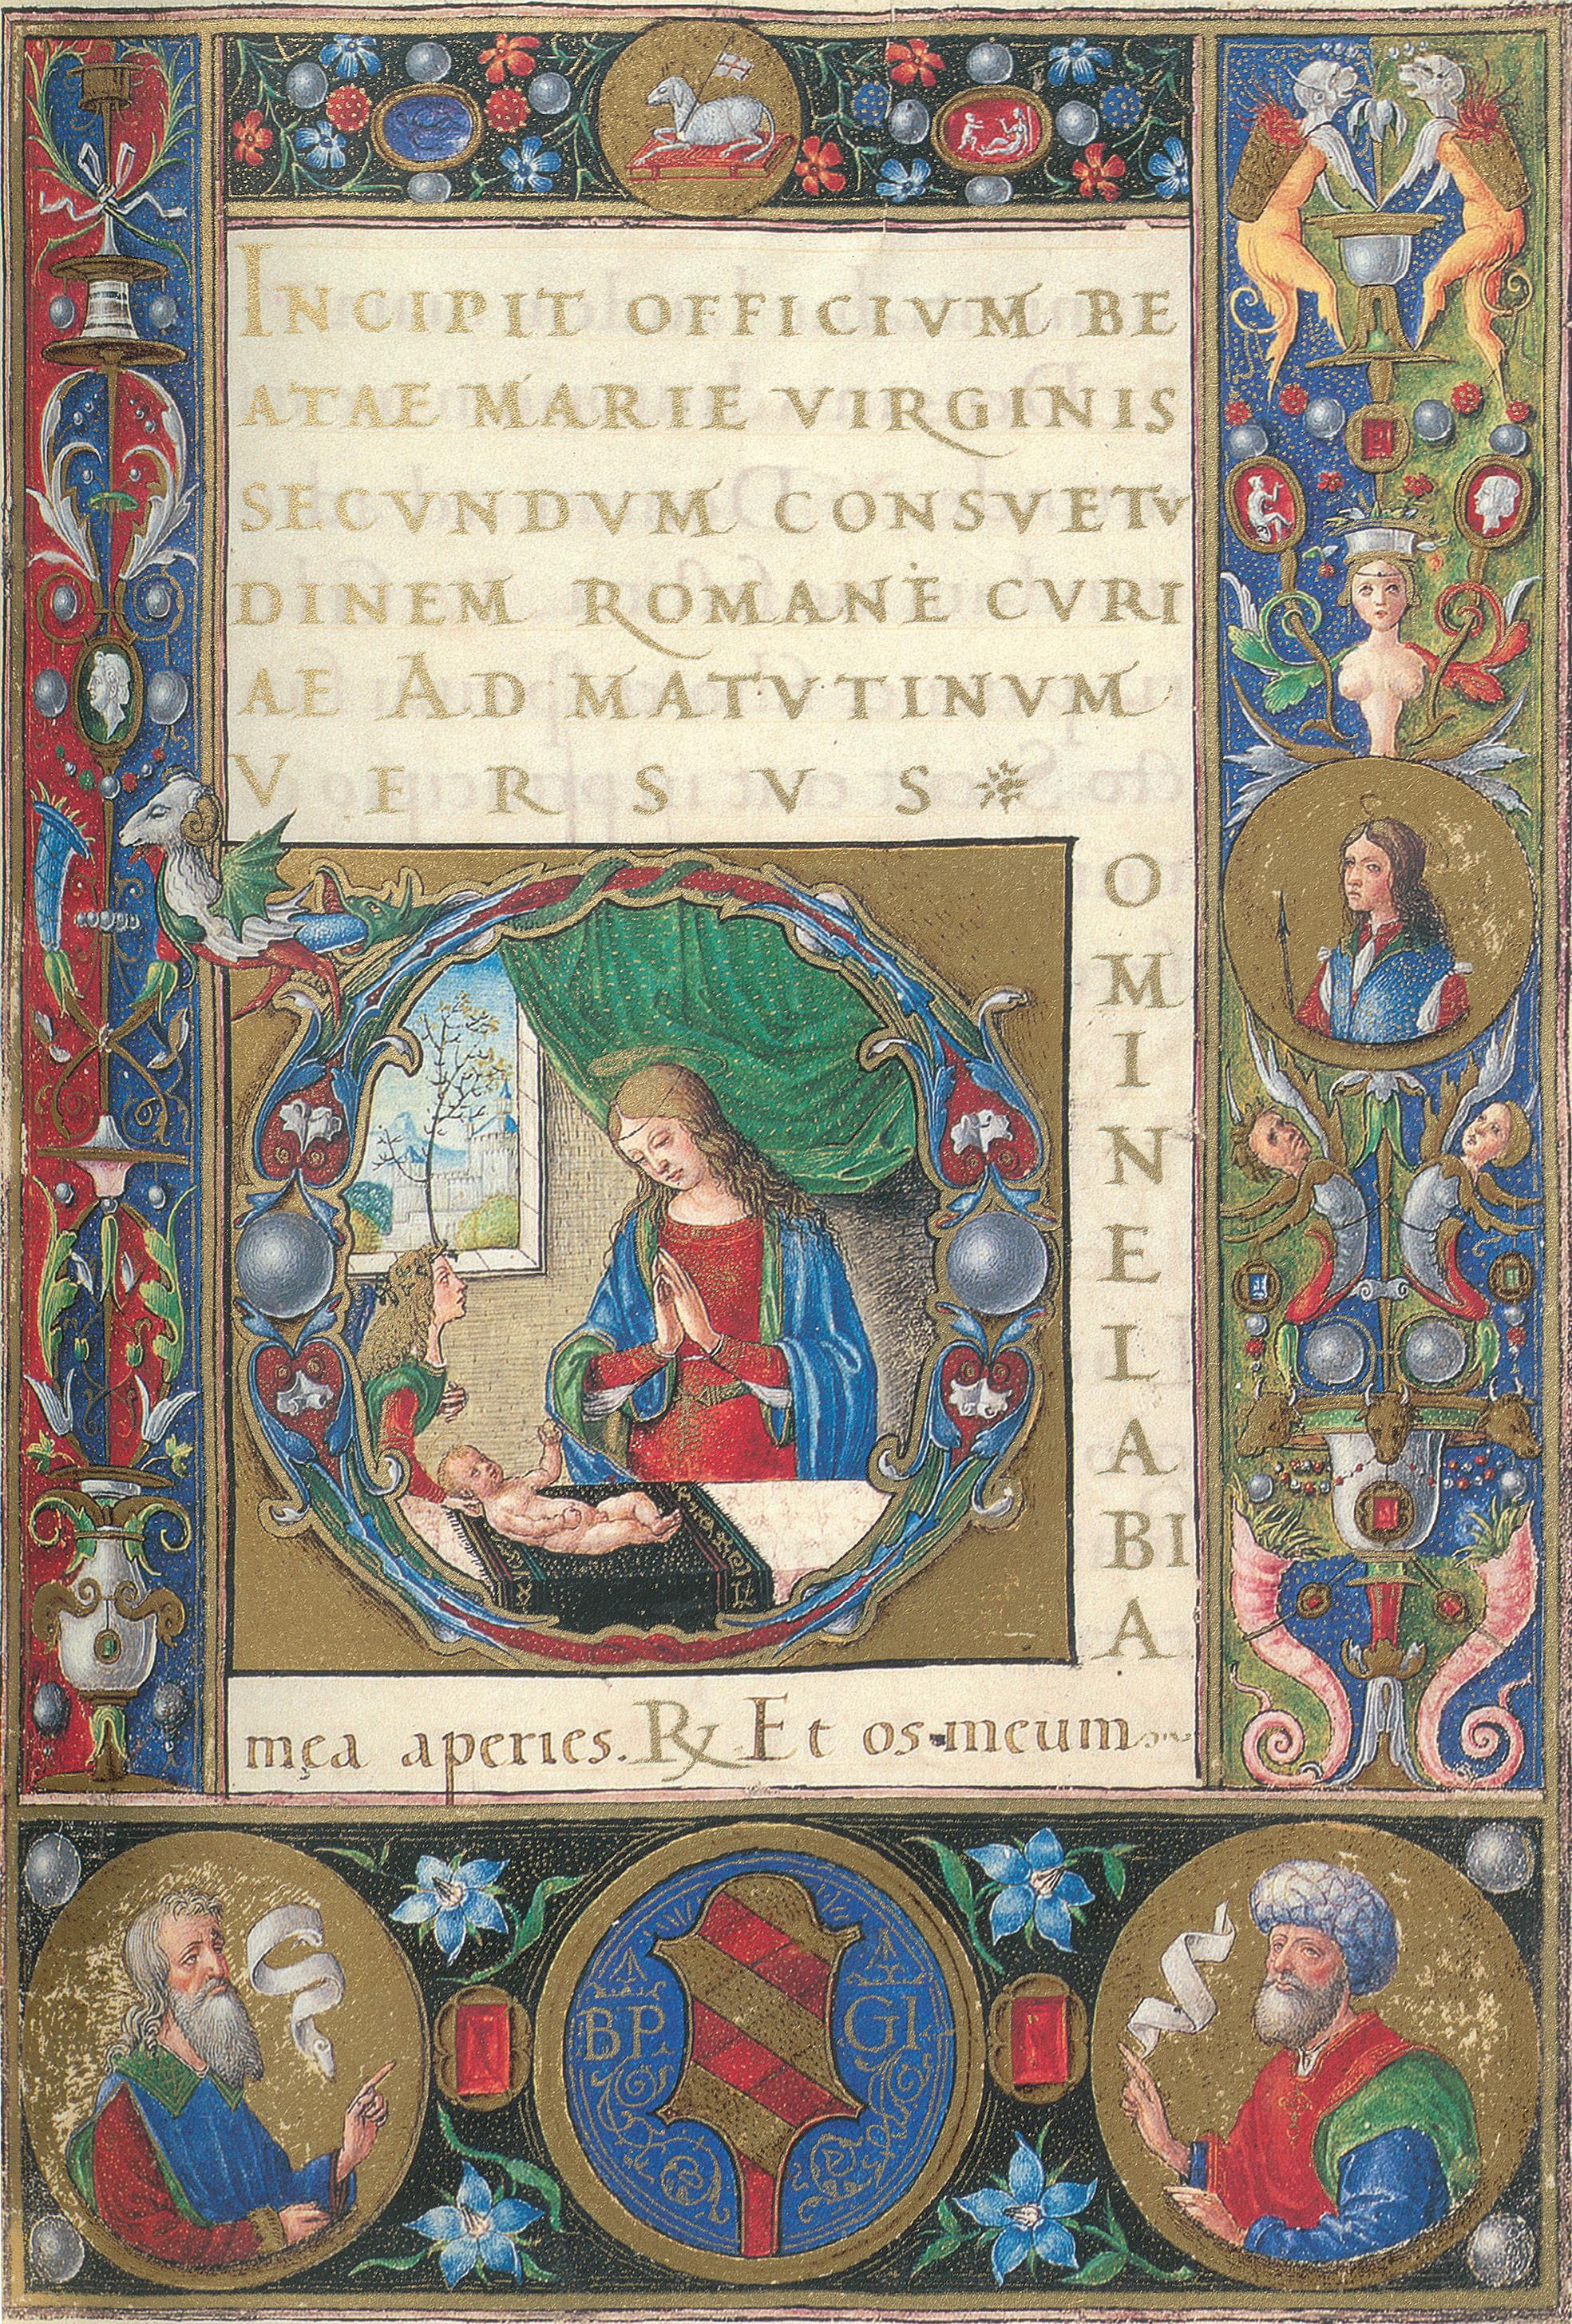 INCIPIT OFFICIVM BE
ATAE MARIE VIRGINIS
SECVNDVM CONSVETV
DINEM ROMANE CVRI
AE AD MATVTINVM
VERSVS
O
M
I
N
E
L
A
BI
A
mea aperies. ℟ Et os meum
BP GI